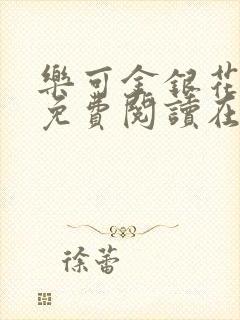 樂可金銀花
免費閱讀在
徐蕾